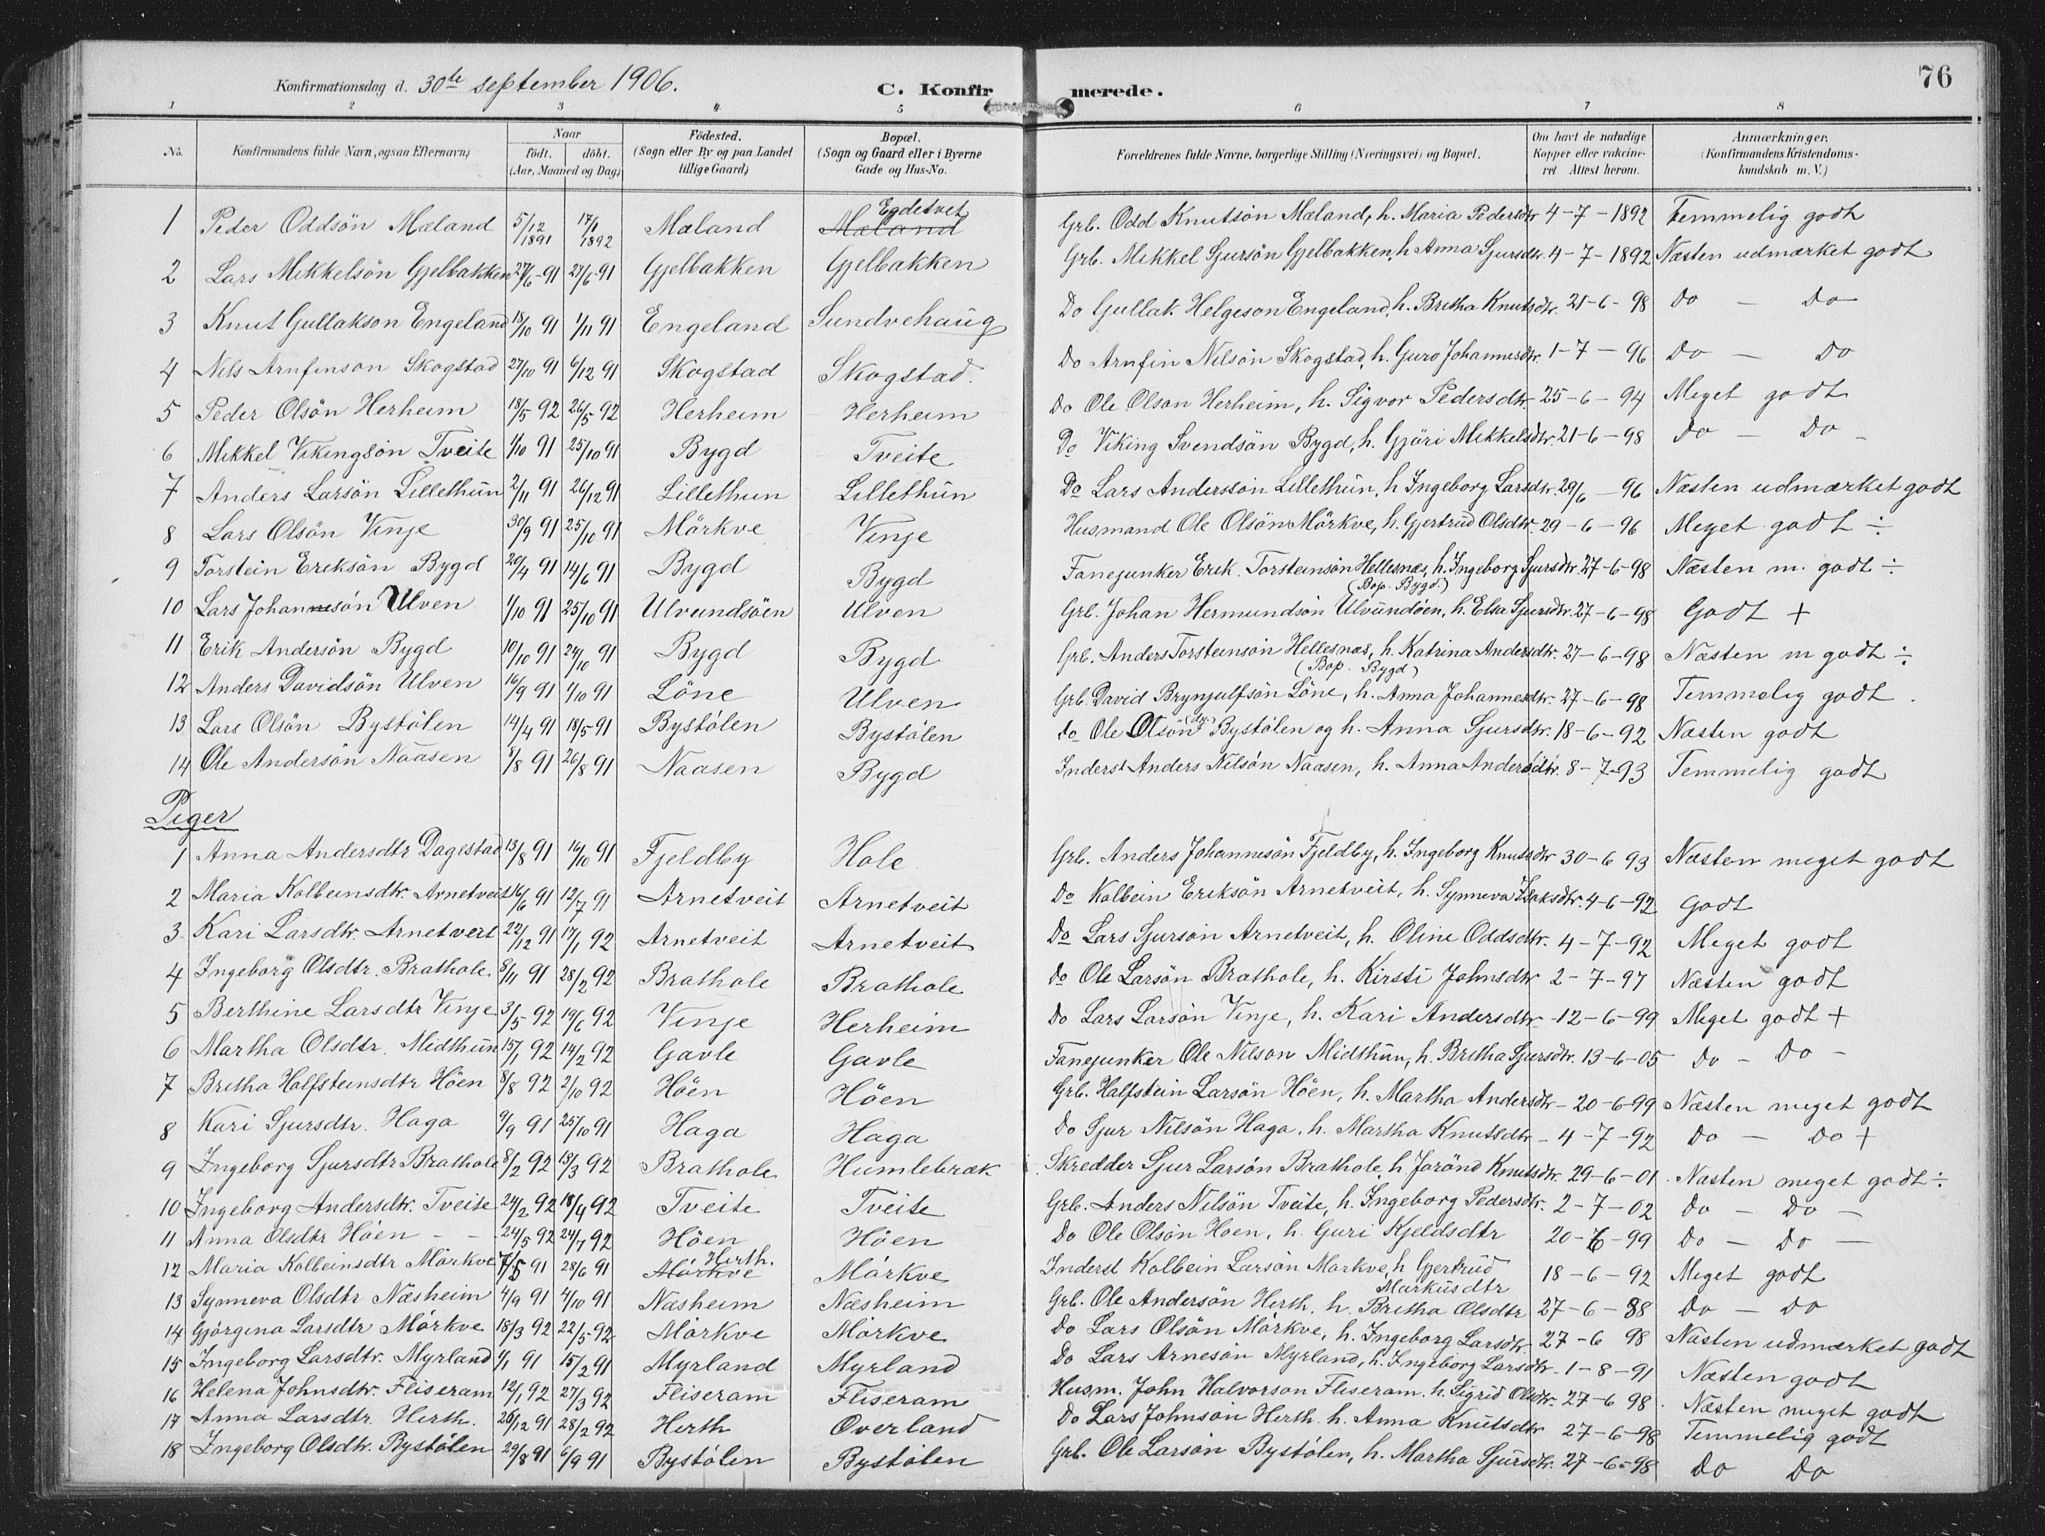 76
Konfirmationsdag d. 30te september 1906. C. Konfirmerede.
1 2 3 4 5 6 7 8
No. Konfirmandens fulde Navn, ogsaa Efternavn, Naar födt. döbt. (Aar, Maaned og Dag) Födested. (Sogn eller By og paa Landet tillige Gaard) Bopæl. (Sogn og Gaard eller i Byerne Gade og Hus-No. Forældrenes fulde Navne, borgerlige Stilling (Næringsvei) og Bopæl. Om havt de naturlige Kopper eller vakcineret Attest herom. Anmærkninger, (Konfirmandens Kristendomskundskab m. V.)
1 Peder Oddsön Mæland 5/12 1891 17/1 1892 Mæland Egdetvet Mæland Grb. Odd Knutsön Mæland, h. Maria Pedersdtr 4-7-1892 Temmelig godt
2 Lars Mikkelsön Gjelbakken 27/6-91 27/6 91 Gjelbakken Gjelbakken Grb. Mikkel Sjursön Gjelbakken, h Anna Sjursdtr. 4-7-1892 Næsten udmærket godt
3 Knut Gullakson Engeland 18/10 91 1/11 91 Engeland Sundvehaug Do Gullak Helgeson Engeland, h. Britha Knutsdtr. 21-6-98 Do - Do
4 Nils Arnfinson Skogstad 27/10 91 6/12 91 Skogstad Skogstad. Do Arnfin Nilsön Skogstad, h. Guro Johannesdtr. 1-7-96 Do - Do
5 Peder Olsön Herheim 18/5 92 26/5 92 Herheim Herheim Do Ole Olson Herheim, h. Sigvor Pedersdtr 25-6-94 Meget godt
6 Mikkel Vikingsön Tveite 1/10 91 25/10 91 Bygd Tveite Do Viking Svendsön Bygd, h. Gjöri Mikkelsdtr. 21-6-98 Do - Do -
7 Anders Larsön Lillethun 2/11 91 26/12 91 Lillethun Lillethün Do Lars Anderssön Lillethün, h Ingeborg Larsdtr. 29/6 - 96 Næsten udmærket godt
8 Lars Olsön Vinje 30/9 91 25/10 91 Mörkve Vinje Husmand Ole Olsön Mörkve, h. Gjertrud Olsdtr. 29-6-96 Meget godt ÷
9 Torstein Eriksön Bygd 20/4 91 14/6 91 Bygd Bygd Fanejunker Erik Torsteinsön Hellesnæs, h. Ingeborg Sjursdtr. 27-6-98 Næsten m. godt ÷
(Bop. Bygd.)
10 Lars Johannesön Ulven 1/10 91 25/10 91 Ulvundsöen Ulven Grb. Johan Hermundsön Ulvundöen, h. Elsa Sjursdtr. 27-6-98 Godt +
11 Erik Andersön Bygd 10/10 91 24/10 91 Bygd Bygd Grb. Anders Torsteinsön Hellesnæs, h. Katrina Andersdtr. 27-6-98 Næsten m godt ÷
(Bop. Bygd)
12 Anders Davidsön Ulven 16/9 91 1/10 91 Löne Ulven Grb. David Brynjulfsön Löne, h. Anna Johannesdtr. 27-6-98 Temmelig godt.
13 Lars Olsön Bystölen 14/4 91 18/5 91 Bystölen Bystölen Do Ole Olsön Bystölen og h. Anna Sjursdtr. 18-6-92 Næsten godt
14 Ole Andersön Naasen 8/8 91 26/8 91 Naasen Bygd Inderst Anders Nilsön Naasen, h. Anna Andersdtr. 8-7-93 Temmelig godt
Piger
1 Anna Andersdtr Dagestad 13/8 91 16/10 91 Fjeldby Hole Grb. Anders Johannesön Fjeldby, h. Ingeborg Knutsdtr 30-6 93 Næsten meget godt
2 Maria Kolbeinsdtr. Arnetveit 16/6 91 12/7 91 Arnetveit Arnetveit Do Kolbein Eriksön Arnetveit, h. Synneva Isaksdtr. 4-6-92 Godt
3 Kari Larsdtr. Arnetveit 22/12 91 17/1 92 Arnetveit Arnetveit Do Lars Sjursön Arnetveit, h. Oline Oddsdtr. 4-7-92 Meget godt
4 Ingeborg Olsdtr. Brathole. 8/11 91 28/2 92 Brathole Brathole Do Ole Larsön Brathole, h. Kirsti Johnsdtr 2-7-97 Næsten godt
5 Berthine Larsdtr Vinje 3/5 92 19/6 92 Vinje Herheim Do Lars Larsön Vinje, h. Kari Andersdtr. 12-6-99 Meget godt +
6 Martha Olsdtr. Midthun 15/1 92 14/2 92 Gavle Gavle Fanejunker Ole Nilson Midthün, h. Britha Sjursdtr. 13-6-05 Do - Do -
7 Britha Halfsteinsdtr Höen 8/8 92 2/10 92 Höen Höen Grb. Halfstein Larsön Höen, h. Martha Andersdtr - 20-6-99 Næsten meget godt
8 Kari Sjursdtr. Haga 9/9 91 25/10 91 Haga Haga Do Sjur Nilsön Haga. h. Martha Knutsdtr - 4-7-92 Do - Do +
9 Ingeborg Sjursdtr Brathole 8/2 92 13/3 92 Brathole Humlebræk Skredder Sjur Larsön Brathole, h Jorönd Knutsdtr. 29-6-01. Næsten meget godt ÷
10 Ingeborg Andersdtr. Tveite 24/2 92 18/4 92 Tveite Tveite Grb. Anders Nilsön Tveite, h. Ingeborg Pedersdtr. 2-7-02 Do - Do -
11 Anna Olsdtr Höen - - 24/5 92 24/7 92 Höen Höen Do Ole Olsön Höen, h. Guri Kjeldsdtr 20-6-99 Do - Do -
12 Maria Kolbeinsdtr Mörkve 7/5 91 28/6 91 Herth. Mörkve Mörkve Inderst Kolbein Larsön Mørkve, h Gjertrud Markusdtr 18-6-92 Meget godt
13 Synneva Olsdtr Næsheim 4/9 91 4/10 91 Næsheim Næsheim Grb. Ole Andersön Herth. h. Britha Olsdtr 27-6-88 Do - Do
14 Gjörgina Larsdtr Mörkve 18/3 92 22/5 92 Mörkve Mörkve Do Lars Olsön Mörkve, h. Ingeborg Larsdtr. 27-6 98 Næsten udmærket godt
15 Ingeborg Larsdtr. Myrland 1/1 91 15/2 91 Myrland Myrland Do Lars Arnesön Myrland, h. Ingeborg Larsdtr. 1-8-91 Næsten godt
16 Helena Johnsdtr. Fliseram 12/1 92 27/3 92 Fliseram Fliseram Husm. John Halvorson Fliseram. h. Sigrid Olsdtr. 27-6 98. Næsten meget godt
17 Anna Larsdtr Herth. 26/12 91 28/2 92 Herth Overland Do Lars Johnsön Herth. h. Anna Knutsdtr 27-6-98 Temmelig godt
18 Ingeborg Olsdtr. Bystölen 29/8 91 6/9 91 Bystölen Bystölen Grb. Ole Larsön Bystölen, h. Martha Sjursdtr. 27-6-98 Do Do